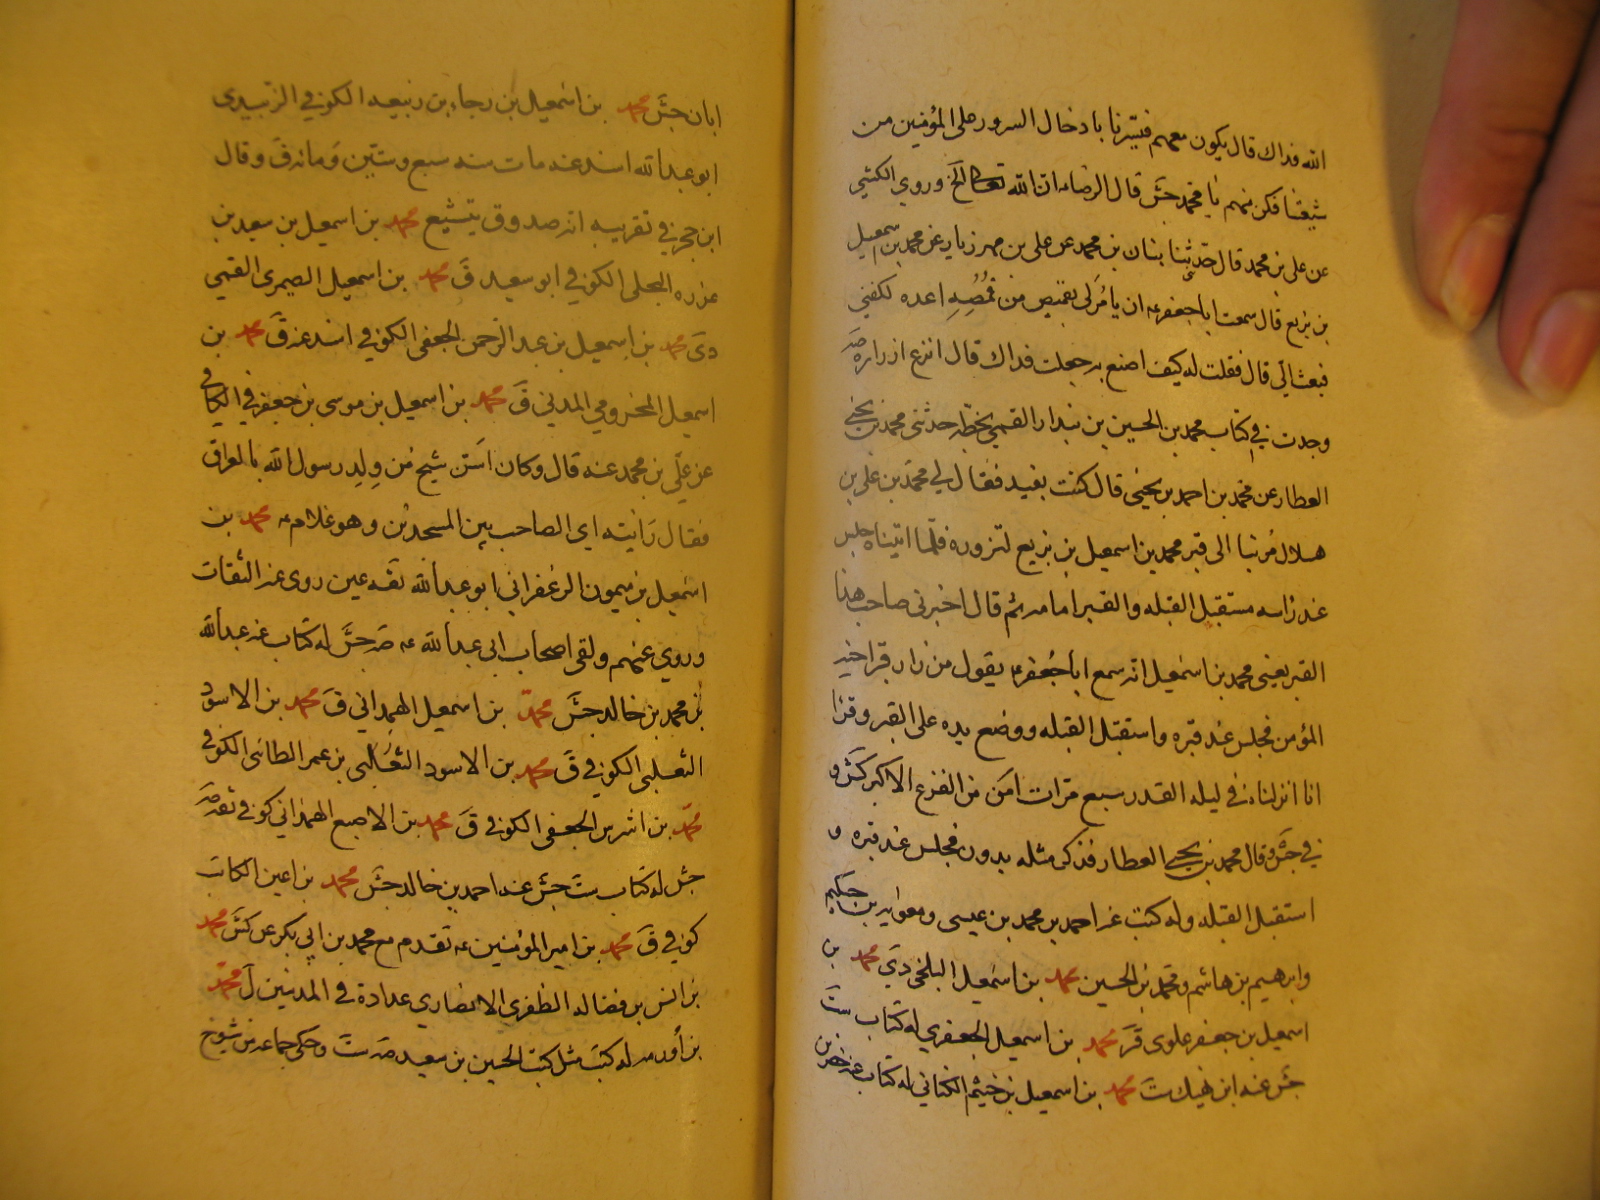 الله فداك قال يكون معهم فيسرنا بادخال السرور على المؤمنين من
شيعتنا فكن منهم يا محمد جش قال الرضاء ان الله تعالى الخ وروى الكشي
عن على بن محمد قال حدثنى بنان بن محمد عن على بن مهزيار عن محمد بن اسمعيل
بن بزيع قال سمعت اباجعفر ع ان يامر لى بقميص من قمصه اعده لكفنى
فبعث الىّ قال فقلت له كيف اصنع به جعلت فداك قال انزع ازراره صه
وجدت في كتاب محمد بن الحسين بن بندار القمي بخطه حدثني محمد بن يحيى
العطار عن محمد بن احمد بن يحيى قال كنت بفيد فقال لي محمد بن على بن
هلال مر بنا الى قبر محمد بن اسمعيل بن بزيع لنزوره فلما اتيناه جلس
عند راسه مستقبل القبله والقبر امامه ثم قال اخبرنى صاحب هذا
القبر يعنى محمد بن اسمعيل انه سمع اباجعفر ع يقول من زار قبر اخيه
المؤمن فجلس عند قبره واستقبل القبله ووضع يده على القبر وقرأ
انا انزلناه في ليله القدر سبع مرات امن من الفزع الاكبر كش و
في جش وقال محمد بن يحيى العطار فذكر مثله بدون فجلس عند قبره و
استقبل القبله وله كتب عنه احمد بن محمد بن عيسى ومعوايه بن حكيم
وابرهيم بن هاشم ومحمد بن الحسين محمد بن اسمعيل البلخى دى محمد بن
اسمعيل بن جعفر علوى قر محمد بن اسمعيل الجعفري له كتاب ست
جش عنه ابن نهيك ست محمد بن اسمعيل بن خيثم الكناني له كتاب عنه خضر بن
ابان جش محمد بن اسمعيل بن رجاء بن ربيعه الكوفي الزبيدى
ابو عبدالله اسند عنه مات سنه سبع وستين ومائه ق وقال
ابن حجر في تقريبه انه صدوق يتشيع محمد بن اسمعيل بن سعيد بن
عزره البجلى الكوفي ابو سعيد ق محمد بن اسمعيل الصيمرى القمى
دى محمد بن اسمعيل بن عبد الرحمن الجعفى الكوفي اسند عنه ق محمد بن
اسمعيل المخزومي المدني ق محمد بن اسمعيل بن موسى بن جعفر في الكافى
عن علي بن محمد عنه قال وكان اسن شيخ من ولد رسول الله بالعراق
فقال رايته اى الصاحب بين المسجدين وهو غلام ع محمد بن
اسمعيل بن ميمون الزعفراني ابو عبدالله ثقه عين روى عن الثقات
وروي عنهم ولقى اصحاب ابى عبدالله ع صه جش له كتاب عنه عبدالله
بن محمد بن خالد جش محمد بن اسمعيل الهمداني ق محمد بن الاسود
الثعلبى الكوفي ق محمد بن الاسود الثعلبى بن عمر الطائى الكوفى
محمد بن اشرس الجعفى الكوفي ق محمد بن الاصبغ الهمداني كوفي ثقه صه
جش له كتاب ست جش عنه احمد بن خالد جش محمد بن اعين الكاتب
كوفي ق محمد بن امير المؤمنين ع تقدم مع محمد بن ابي بكر عن كش محمد
بن انس بن فضاله الظفري الانصاري عداده في المدنيين ل محمد
بن اورمه له كتب مثل كتب الحسين بن سعيد صه ست وحكى جماعه من شيوخ